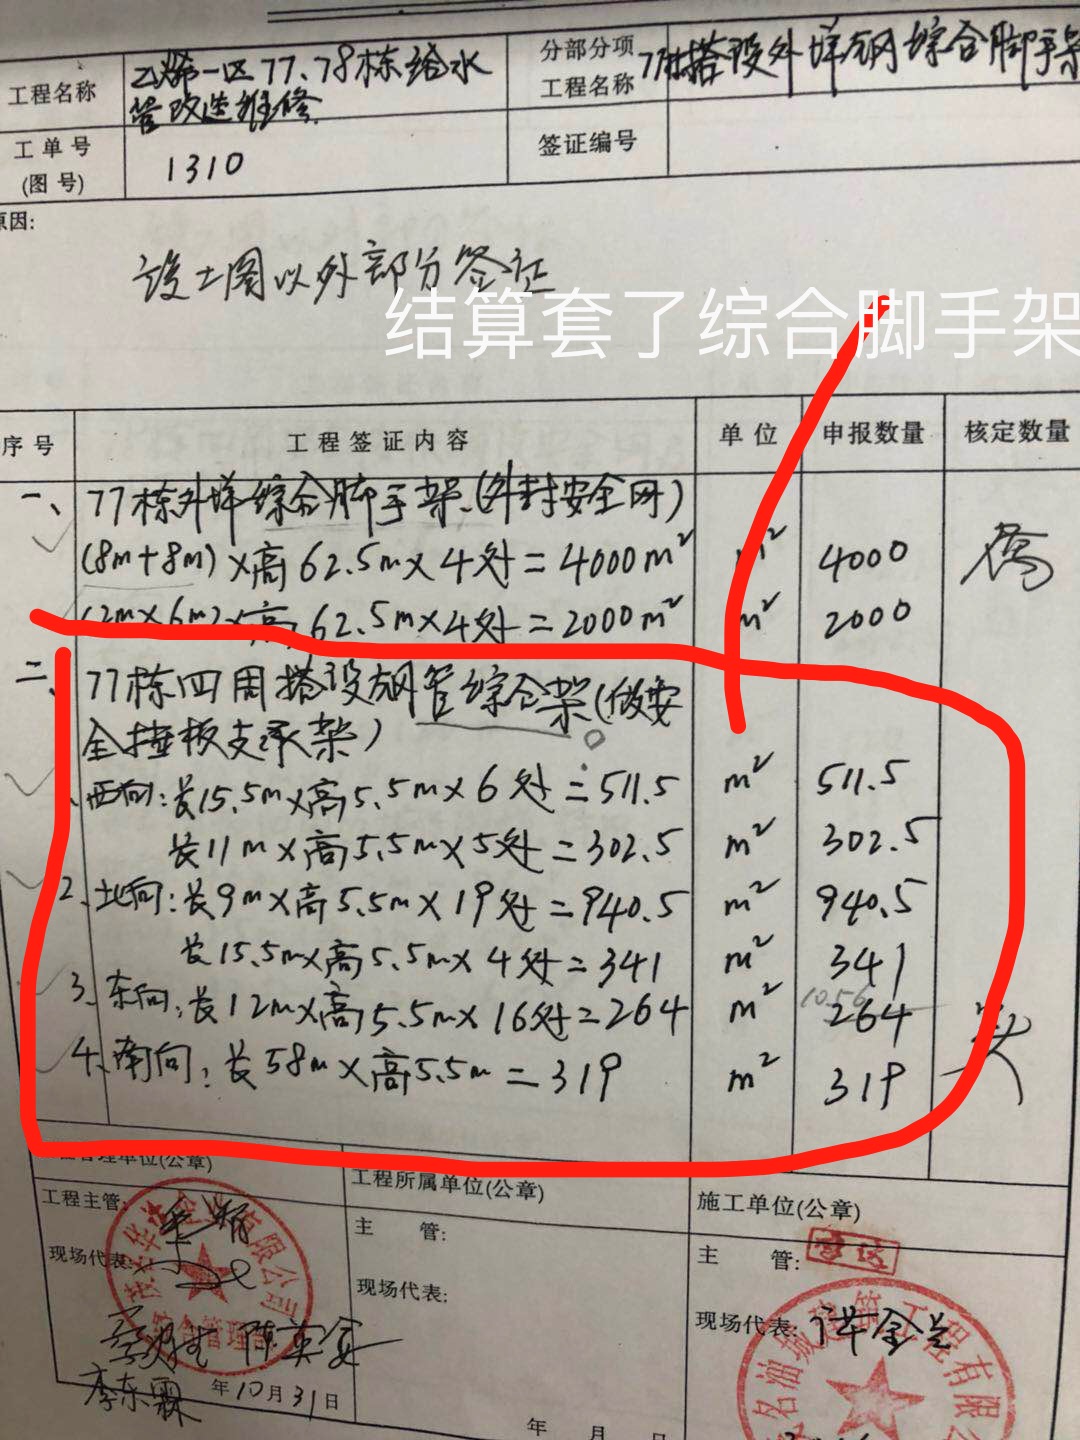 工程名称
乙烯一区77、78栋给水
管改造维修
分部分项
工程名称
77栋搭设外墙钢综合脚手架
工单号
(图号)
1310
签证编号
原因:
设计图以外部分签证
结算套了综合脚手架
序号 工程签证内容 单位 申报数量 核定数量
一、77栋外墙综合脚手架(外封安全网)
(8m+8m)×高62.5m×4处=4000m² m² 4000
(2m×6m)×高62.5m×4处=2000m² m² 2000
二、77栋四周搭设钢管综合架(做安
全挡板支承架)
西向:长15.5m×高5.5m×6处=511.5 m² 511.5
长11m×高5.5m×5处=302.5 m² 302.5
2、北向:长9m×高5.5m×19处=940.5 m² 940.5
长15.5m×高5.5m×4处=341 m² 341
3、东向:长12m×高5.5m×16处=264 m² 1056 264
4、南向:长58m×高5.5m=319 m² 319
管理单位(公章)
工程所属单位(公章)
施工单位(公章)
工程主管:
主 管:
主 管:
现场代表:
现场代表:
现场代表:
年10月31日
年 月 日